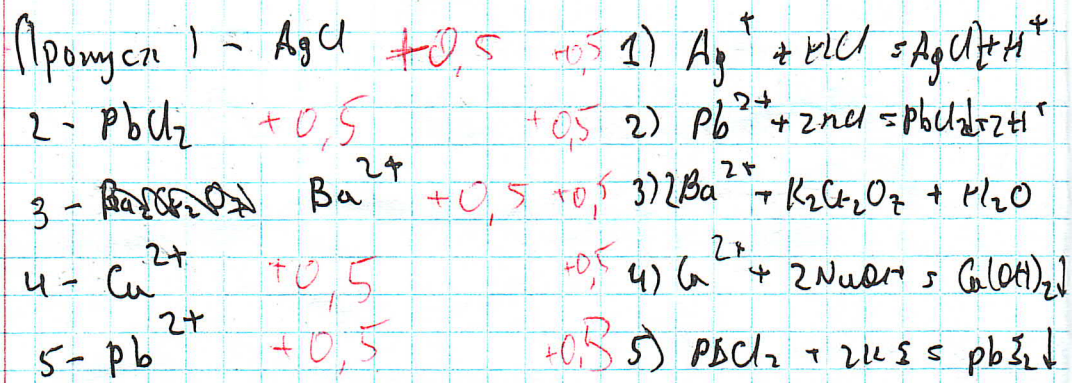 Пропуск 1 - AgCl +0,5 +0,5 1) Ag⁺ + HCl = AgCl↓ + H⁺
2 - PbCl₂ +0,5 +0,5 2) Pb²⁺ + 2HCl = PbCl₂↓ + 2H⁺
3 - Ba²⁺ +0,5 +0,5 3) 2Ba²⁺ + K₂Cr₂O₇ + H₂O
4 - Ca²⁺ +0,5 +0,5 4) Ca²⁺ + 2NaOH = Ca(OH)₂↓
5 - Pb²⁺ +0,5 +0,5 5) PbCl₂ + 2KI = PbI₂↓